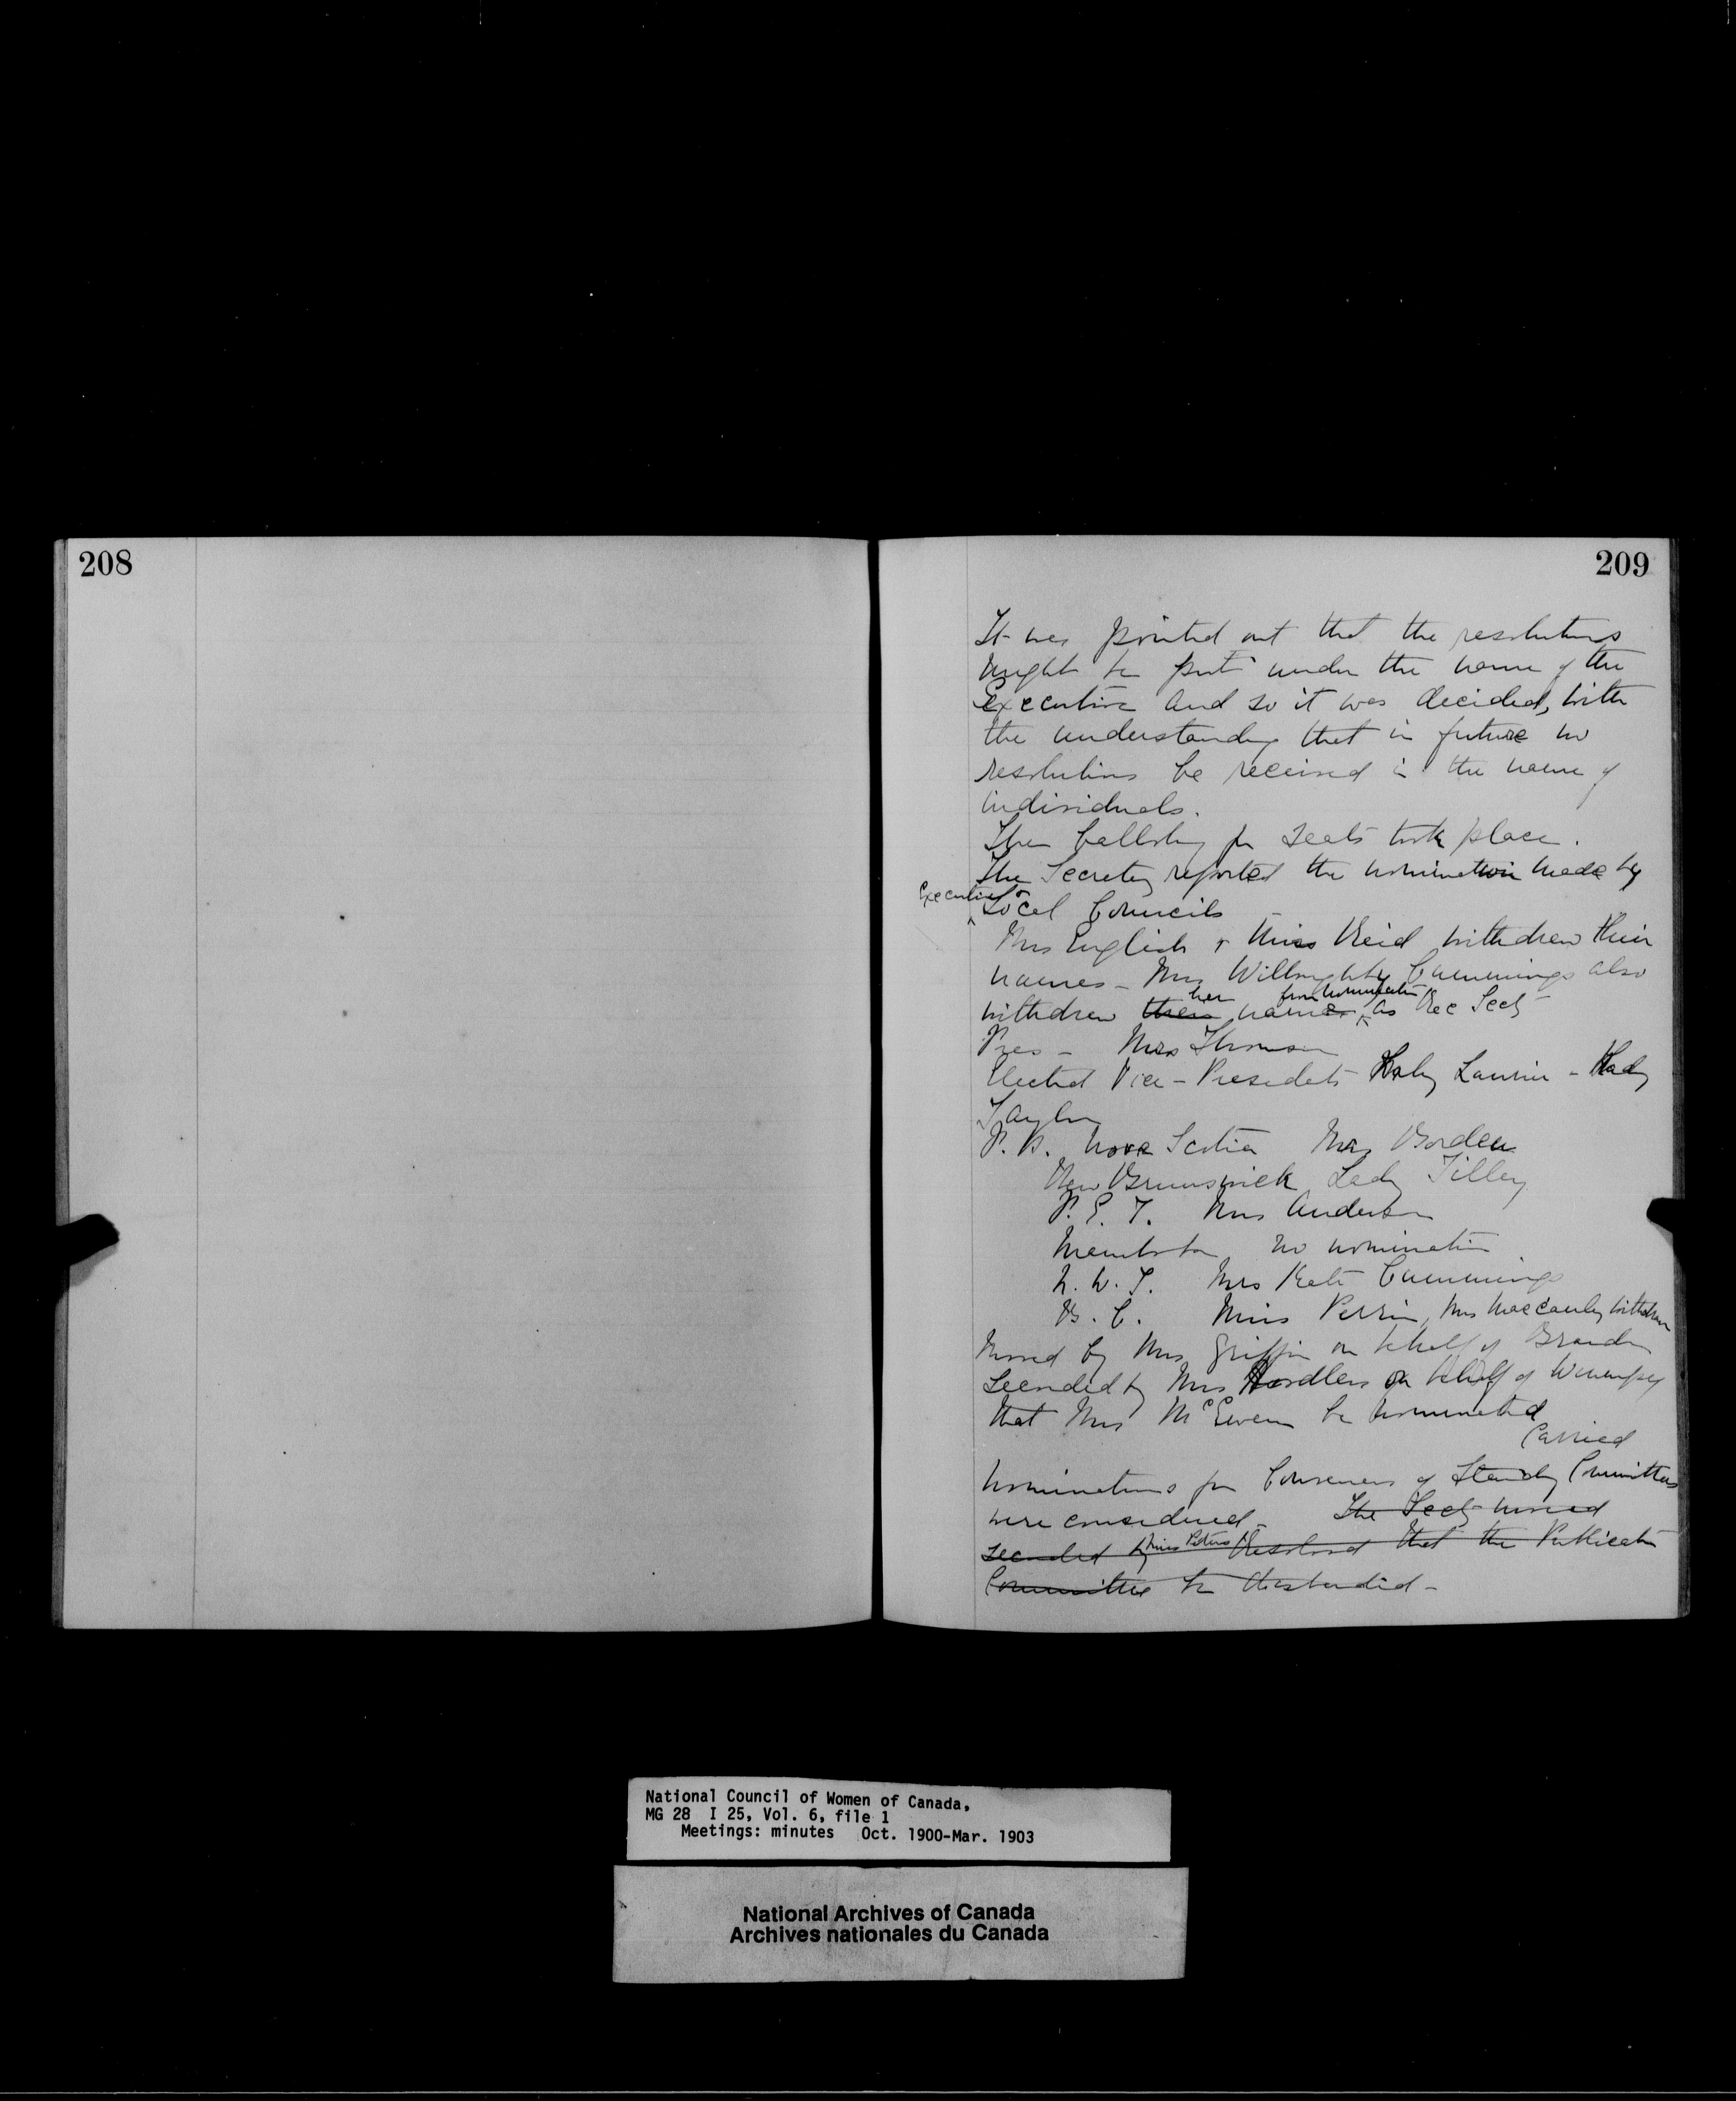 208
209
It was pointed out that the resolutions
might be put under the name of the
Executive and so it was decided, with
the understanding that in future no
resolutions be received in the name of
individuals.
The balloting for seats took place.
The Secretary reported the nomination made by
Executive or
Local Councils
Mrs English & Miss Reid withdrew their
names - Mrs Willoughby Cummings also
withdrew their her names from nomination as Rec Secy
Pres - Mrs Thomson
Elected Vice-Presidents Lady Laurier - Lady
Taylor
P. V. Nova Scotia Mrs Borden
New Brunswick Lady Tilley
P. E. I. Mrs Anderson
Manitoba no nomination
N. W. T. Mrs Kate Cummings
B. C. Miss Perrin, Mrs Maccauley withdrew
Moved by Mrs Griffin on behalf of Brandon
Seconded by Mrs on behalf of Winnipeg
that Mrs McEwen be nominated
Carried
Nominations for Conveners of Standing Committees
were considered - The Secy moved
seconded by Miss Peters Resolved that the Publication
Committee be disbanded -
National Council of Women of Canada,
MG 28 I 25, Vol. 6, file 1
Meetings: minutes Oct. 1900-Mar. 1903
National Archives of Canada
Archives nationales du Canada